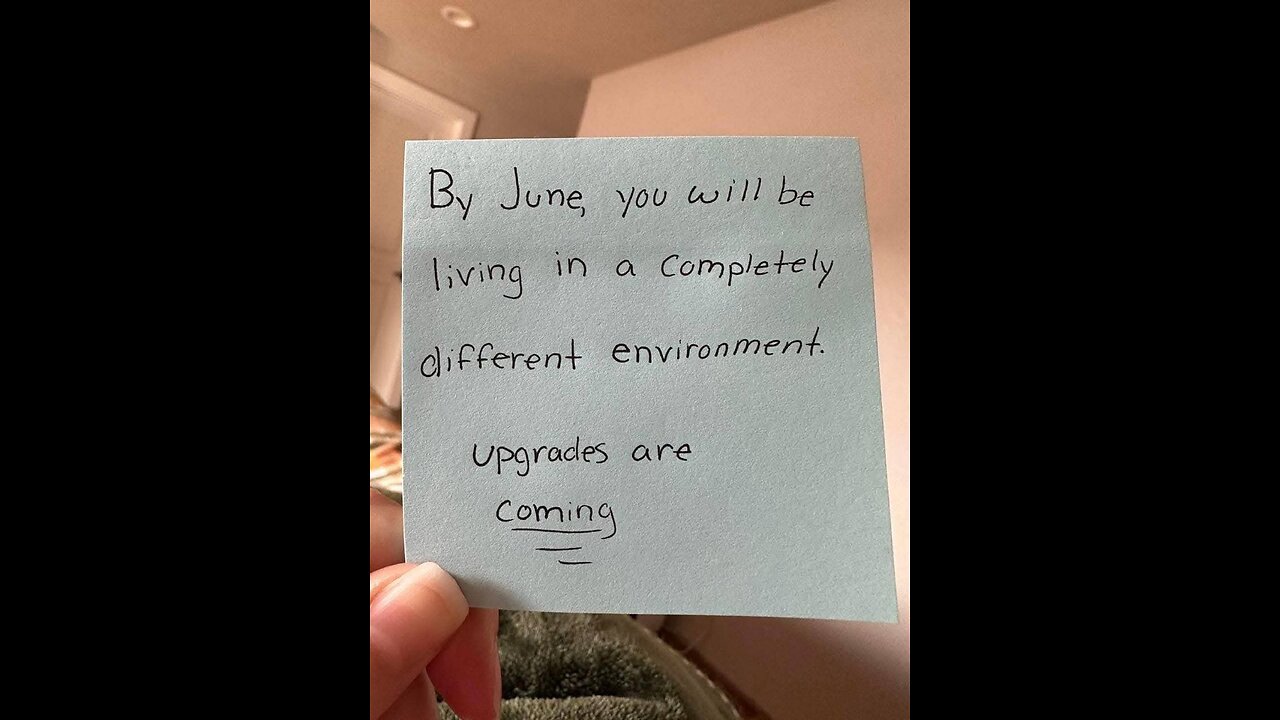 By June, you will be
living in a completely
different environment.
upgrades are
coming